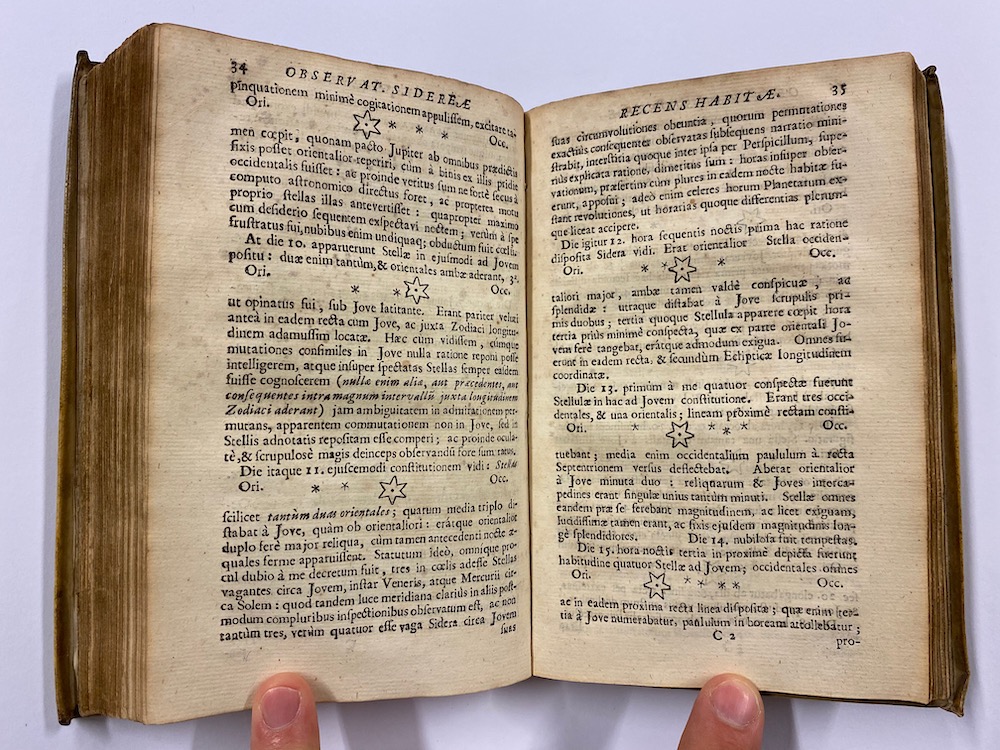 34 OBSERVAT. SIDEREÆ
pinquationem minimè cogitationem appulissem, excitare ta-
Ori. * * * Occ.
men cœpit, quonam pacto Jupiter ab omnibus prædictis
fixis posset orientalior reperiri, cùm à binis ex illis pridie
occidentalis fuisset: ac proinde veritus sum ne fortè secus à
computo astronomico directus foret, ac propterea motu
proprio stellas illas antevertisset: quapropter maximo
cum desiderio sequentem exspectavi noctem; verùm à spe
frustratus fui, nubibus enim undiquaq; obductum fuit cœlum.
At die 10. apparuerunt Stellæ in ejusmodi ad Jovem
positu: duæ enim tantùm, & orientales ambæ aderant, 3ª.
Ori. * * Occ.
ut opinatus fui, sub Jove latitante. Erant pariter veluti
anteà in eadem recta cum Jove, ac juxta Zodiaci longitu-
dinem adamussim locatæ. Hæc cùm vidissem, cumque
mutationes consimiles in Jove nulla ratione reponi posse
intelligerem, atque insuper spectatas Stellas semper easdem
fuisse cognoscerem (nullæ enim aliæ, aut præcedentes, aut
consequentes intra magnum intervallū juxta longitudinem
Zodiaci aderant) jam ambiguitatem in admirationem per-
mutans, apparentem commutationem non in Jove, sed in
Stellis adnotatis repositam esse comperi; ac proinde ocula-
tè, & scrupulosè magis deinceps observandū fore sum ratus.
Die itaque 11. ejuscemodi constitutionem vidi: Stellas
Ori. * * Occ.
scilicet tantùm duas orientales; quarum media triplo di-
stabat à Jove, quàm ob orientaliori: erátque orientalior
duplo ferè major reliqua, cùm tamen antecedenti nocte æ-
quales ferme apparuissent. Statutum ideò, omnique pro-
cul dubio à me decretum fuit, tres in cœlis adesse Stellas
vagantes circa Jovem, instar Veneris, atque Mercurii cir-
ca Solem: quod tandem luce meridiana clarius in aliis post-
modum compluribus inspectionibus observatum est, ac non
tantùm tres, verùm quatuor esse vaga Sidera circa Jovem
suas
RECENS HABITÆ. 35
suas circumvolutiones obeuntia, quorum permutationes
exactius consequenter observatas subsequens narratio mini-
strabit, interstitia quoque inter ipsa per Perspicillum, supe-
rius explicata ratione, dimetitus sum: horas insuper obser-
vationum, præsertim cùm plures in eadem nocte habitæ fu-
erunt, apposui; adeò enim celeres horum Planetarum ex-
stant revolutiones, ut horarias quoque differentias plerun-
que liceat accipere.
Die igitur 12. hora sequentis noctis prima hac ratione
disposita Sidera vidi. Erat orientalior Stella occiden-
Ori. * * * Occ.
taliori major, ambæ tamen valdè conspicuæ, ac
splendidæ: utraque distabat à Jove scrupulis pri-
mis duobus; tertia quoque Stellula apparere cœpit hora
tertia prius minimè conspecta, quæ ex parte orientali Jo-
vem ferè tangebat, erátque admodum exigua. Omnes fu-
erunt in eadem recta, & secundùm Eclipticæ longitudinem
coordinatæ.
Die 13. primùm à me quatuor conspectæ fuerunt
Stellulæ in hac ad Jovem constitutione. Erant tres occi-
dentales, & una orientalis; lineam proximè rectam consti-
Ori. * * * * Occ.
tuebant; media enim occidentalium paululum à recta
Septentrionem versus deflectebat. Aberat orientalior
à Jove minuta duo: reliquarum & Joves interca-
pedines erant singulæ unius tantùm minuti. Stellæ omnes
eandem præ se ferebant magnitudinem, ac licet exiguam,
lucidissimæ tamen erant, ac fixis ejusdem magnitudinis lon-
gè splendidiores. Die 14. nubilosa fuit tempestas.
Die 15. hora noctis tertia in proximè depicta fuerunt
habitudine quatuor Stellæ ad Jovem; occidentales omnes
Ori. * * * * Occ.
ac in eadem proxima recta linea dispositæ; quæ enim ter-
tia à Jove numerabatur, paululum in boream attollebatur;
C 2
pro-